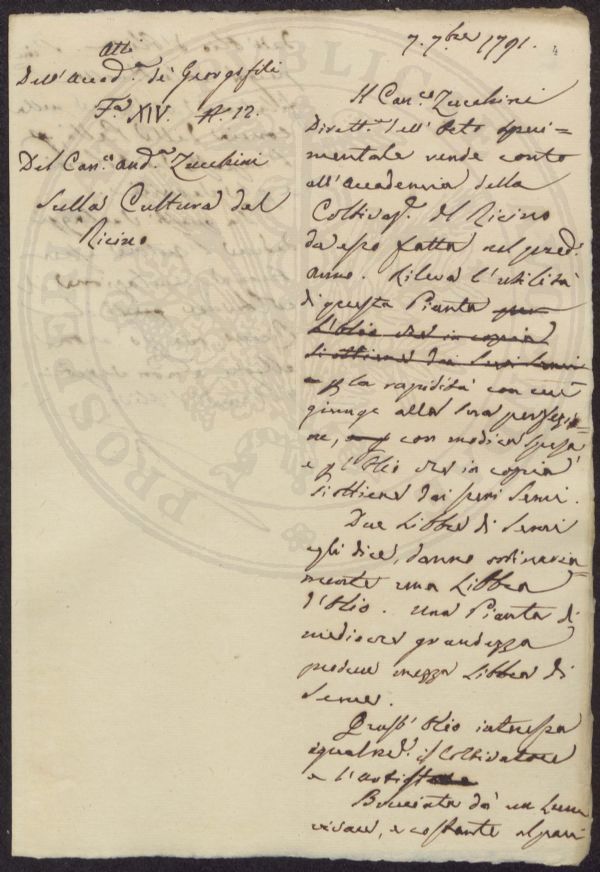 Atti
Dell' Accad.ª de' Georgofili
F.ª XIV. N.º 12.
Del Can.co And.ª Zucchini
Sulla Cultura del
Ricino
7. 7.bre 1791.
Il Can.co Zucchini
Dirett.e dell' Orto Speri=
mentale rende conto
all' Accademia della
Coltivaz.e del Ricino
da esso fatta nel pred.º
anno. Rileva l'utilità
di questa Pianta per
l'Olio che in copia
si ottiene dai suoi semi
e p la rapidità con cui
giunge alla sua perfezio=
ne, con modica spesa
e p l'Olio che in copia
si ottiene dai suoi semi.
Due Libbre di Semi
egli dice, danno ordinaria=
mente una Libbra
d'Olio. Una Pianta di
mediocre grandezza
produce mezza Libbra di
Seme.
Quest' Olio interessa
egualm.e il Coltivatore
e l'Artista
Bruciato dà un Lume
vivace, e costante al pari
PROSPERITÀ PUBLICA